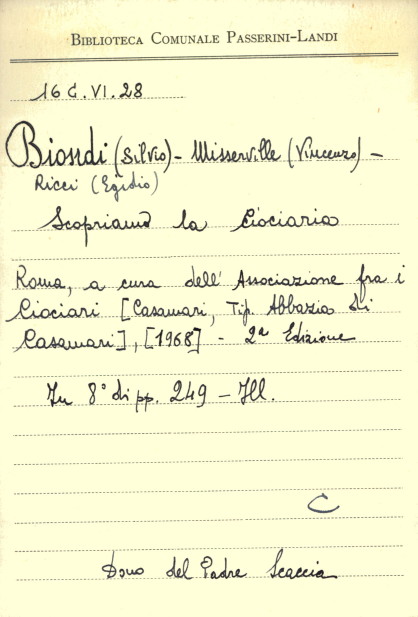 BIBLIOTECA COMUNALE PASSERINI-LANDI
16 C. VI. 28
Biondi (Silvio) - Misserville (Vincenzo) -
Ricci (Egidio)
Scopriamo la Ciociaria
Roma, a cura dell' Associazione fra i
Ciociari [Casamari, Tip. Abbazia di
Casamari], [1968] - 2a Edizione
In 8° di pp. 249 - Ill.
C
Dono del Padre Scaccia